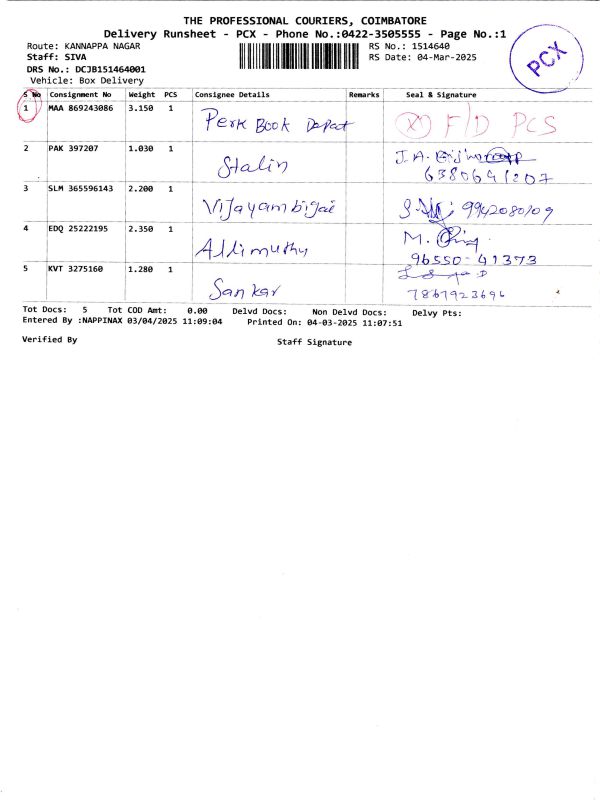 THE PROFESSIONAL COURIERS, COIMBATORE
Delivery Runsheet - PCX - Phone No.:0422-3505555 - Page No.:1
Route: KANNAPPA NAGAR
RS No.: 1514640
Staff: SIVA
RS Date: 04-Mar-2025
DRS No.: DCJB151464001
Vehicle: Box Delivery
PCX
S No Consignment No Weight PCS Consignee Details Remarks Seal & Signature
1 MAA 869243086 3.150 1 Perk Book Depot F/D PCS
2 PAK 397207 1.030 1 Stalin J.A.
6380641207
3 SLM 365596143 2.200 1 Vijayambigai 9942080109
4 EDQ 25222195 2.350 1 M.
96550-41373
5 KVT 3275160 1.280 1 Sankar
7867923696
Tot Docs: 5 Tot COD Amt: 0.00 Delvd Docs: Non Delvd Docs: Delvy Pts:
Entered By :NAPPINAX 03/04/2025 11:09:04 Printed On: 04-03-2025 11:07:51
Verified By Staff Signature